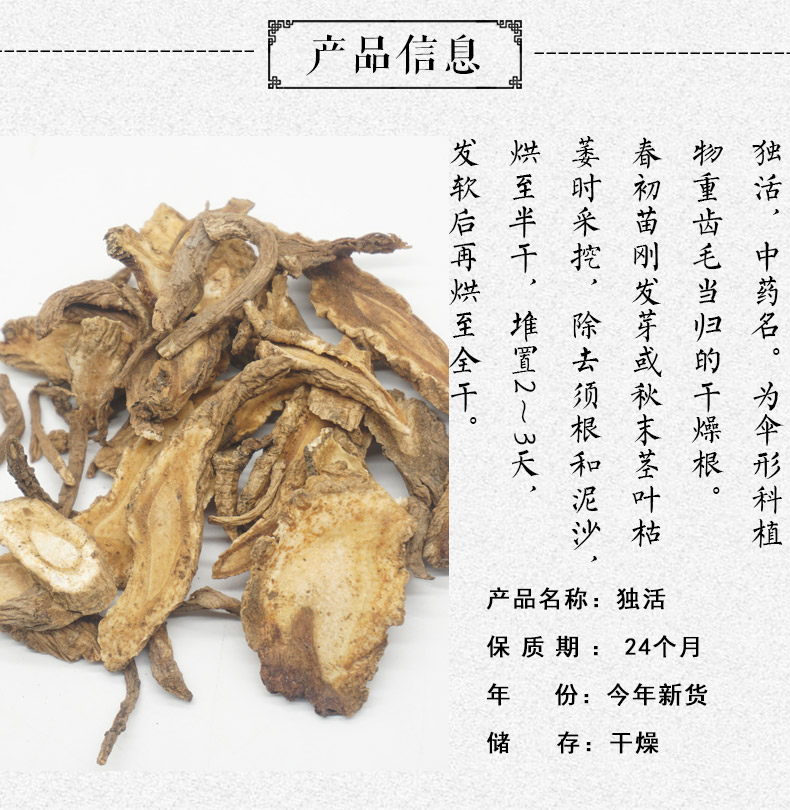 产品信息
独活，中药名。为伞形科植
物重齿毛当归的干燥根。
春初苗刚发芽或秋末茎叶枯
萎时采挖，除去须根和泥沙，
烘至半干，堆置2～3天，
发软后再烘至全干。
产品名称：独活
保质期：24个月
年份：今年新货
储存：干燥